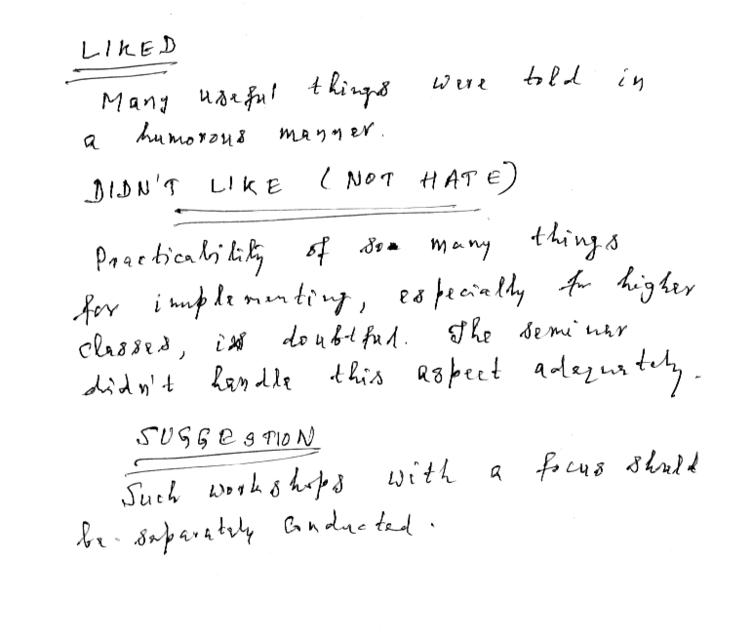 LIKED
Many useful things were told in
a humorous manner.
DIDN'T LIKE (NOT HATE)
Practicability of so many things
for implementing, especially for higher
classes, is doubtful. The seminar
didn't handle this aspect adequately.
SUGGESTION
Such workshops with a focus should
be separately conducted.